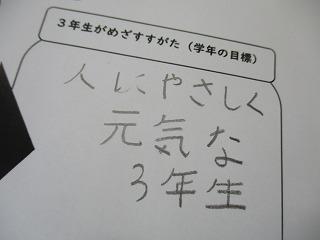 ３年生がめざすすがた（学年の目標）
人にやさしく
元気な
３年生